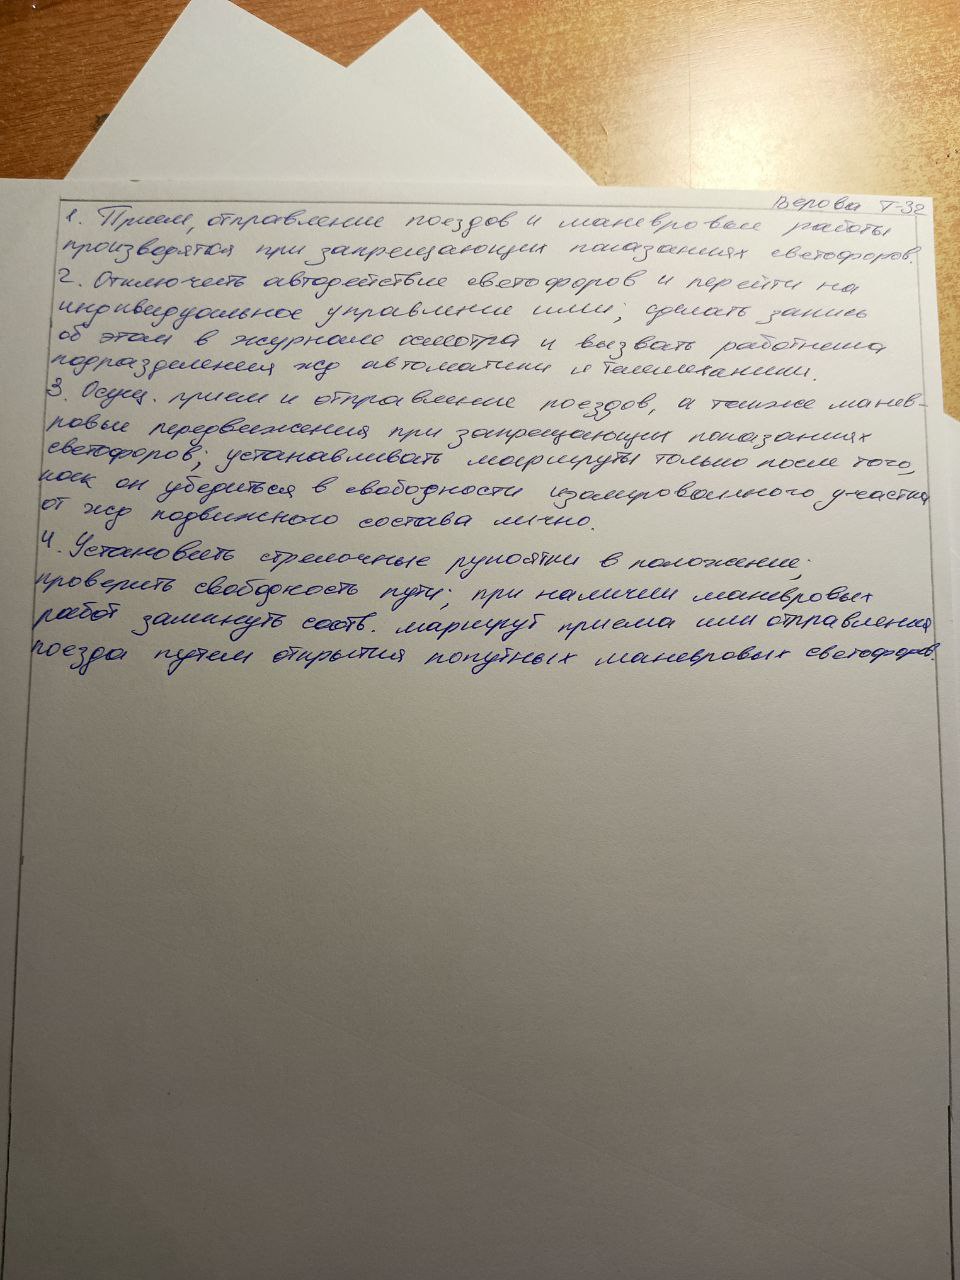 Верова Т-32
1. Прием, отправление поездов и маневровые работы
производятся при запрещающих показаниях светофоров.
2. Отключить автодействие светофоров и перейти на
индивидуальное управление ими; сделать запись
об этом в журнале осмотра и вызвать работника
подразделения жд автоматики и телемеханики.
3. Осущ. прием и отправление поездов, а также манев-
ровые передвижения при запрещающих показаниях
светофоров; устанавливать маршруты только после того,
как он убедиться в свободности изолированного участка
от жд подвижного состава лично.
4. Установить стрелочные рукоятки в положение;
проверить свободность пути; при наличии маневровых
работ замкнуть соотв. маршрут приема или отправления
поезда путем открытия попутных маневровых светофоров.